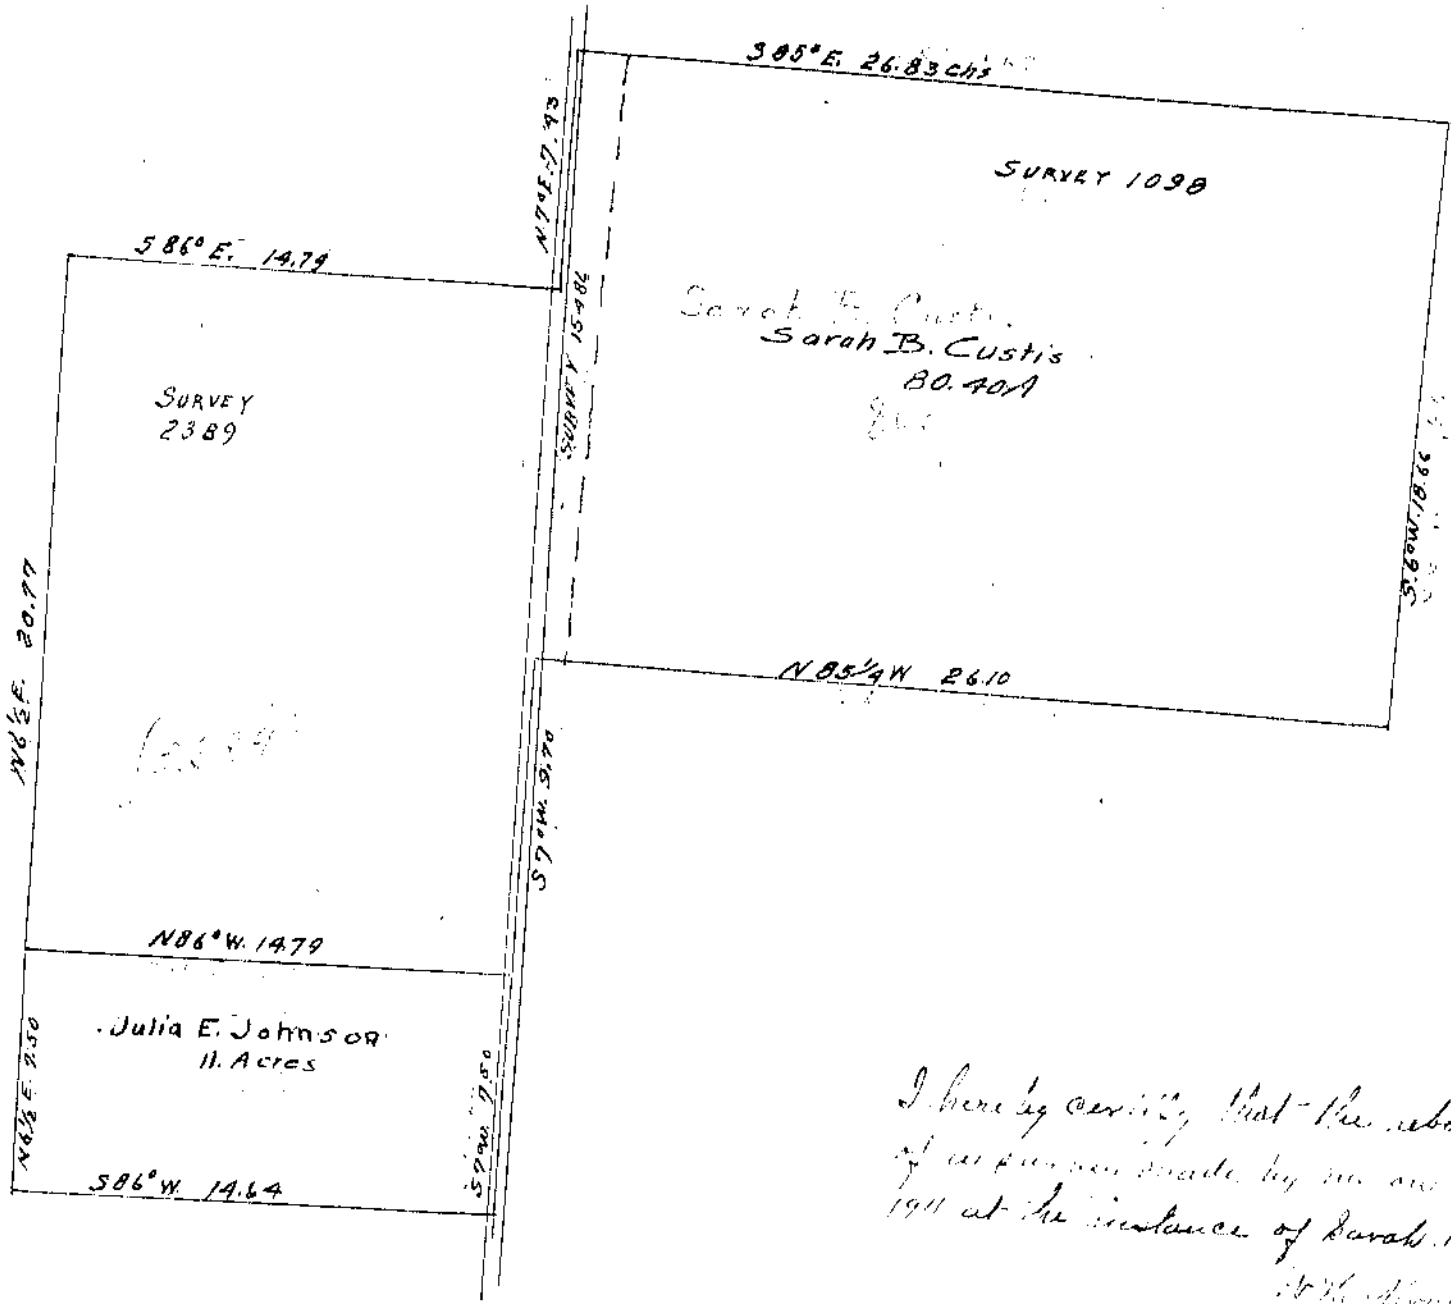 S 85° E. 26.83 chs
N. 7° E. 7.43
SURVEY 1098
S 86° E. 14.79
SURVEY 15486
Sarah B. Custis
Sarah B. Custis
80.40A
SURVEY
2389
S. 6° W. 18.66
N 6 1/2 E. 20.77
N 85 1/4 W 26.10
S 7° W. 9.70
N 86° W. 14.79
Julia E. Johnson
11. Acres
N 6 1/2 E. 7.50
S 7° W. 7.50
S 86° W. 14.64
I hereby certify that the abo
of made by me
1911 at the instance of Sarah